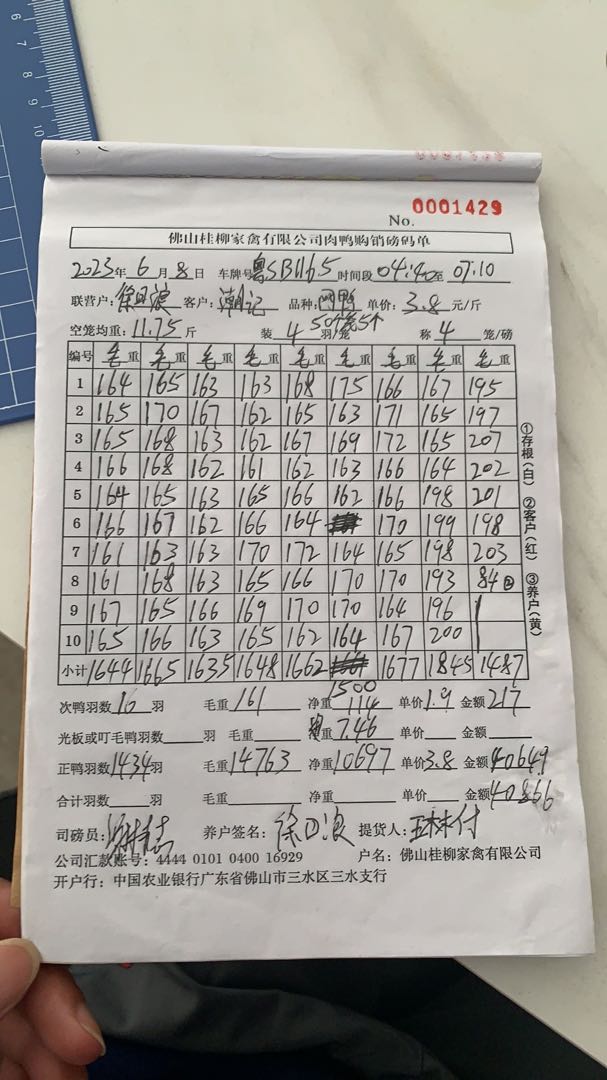 No. 0001429
佛山桂柳家禽有限公司肉鸭购销磅码单
2023年 6月 8日 车牌号 粤SB1165 时间段 04:40至 07:10
联营户: 客户: 潮记 品种: 单价: 3.8 元/斤
空笼均重: 11.75 斤 装 4 羽/笼 称 4 笼/磅
编号 毛重 毛重 毛重 毛重 毛重 毛重 毛重 毛重 毛重
1 164 165 163 163 168 175 166 167 195
2 165 170 167 162 165 163 171 165 197
3 165 168 163 162 167 169 172 165 207
4 166 168 162 161 162 163 166 164 202
5 164 165 163 165 166 162 166 198 201
6 166 167 162 166 164 170 199 198
7 161 163 163 170 172 164 165 198 203
8 161 168 163 165 166 170 170 193 84
9 167 165 166 169 170 170 164 196
10 165 166 163 165 162 164 167 200
小计 1644 1665 1635 1648 1662 1677 1845 1487
1500
次鸭羽数 10 羽 毛重 161 净重 114 单价 1.9 金额 217
光板或叮毛鸭羽数 羽 毛重 净重 7.46 单价 金额
正鸭羽数 1434 羽 毛重 14763 净重 10697 单价 3.8 金额 40649
合计羽数 羽 毛重 净重 单价 金额 40866
司磅员: 养户签名: 提货人:
公司汇款账号: 4444 0101 0400 16929 户名: 佛山桂柳家禽有限公司
开户行: 中国农业银行广东省佛山市三水区三水支行
①存根(白) ②客户(红) ③养户(黄)
6 7 8 9 10